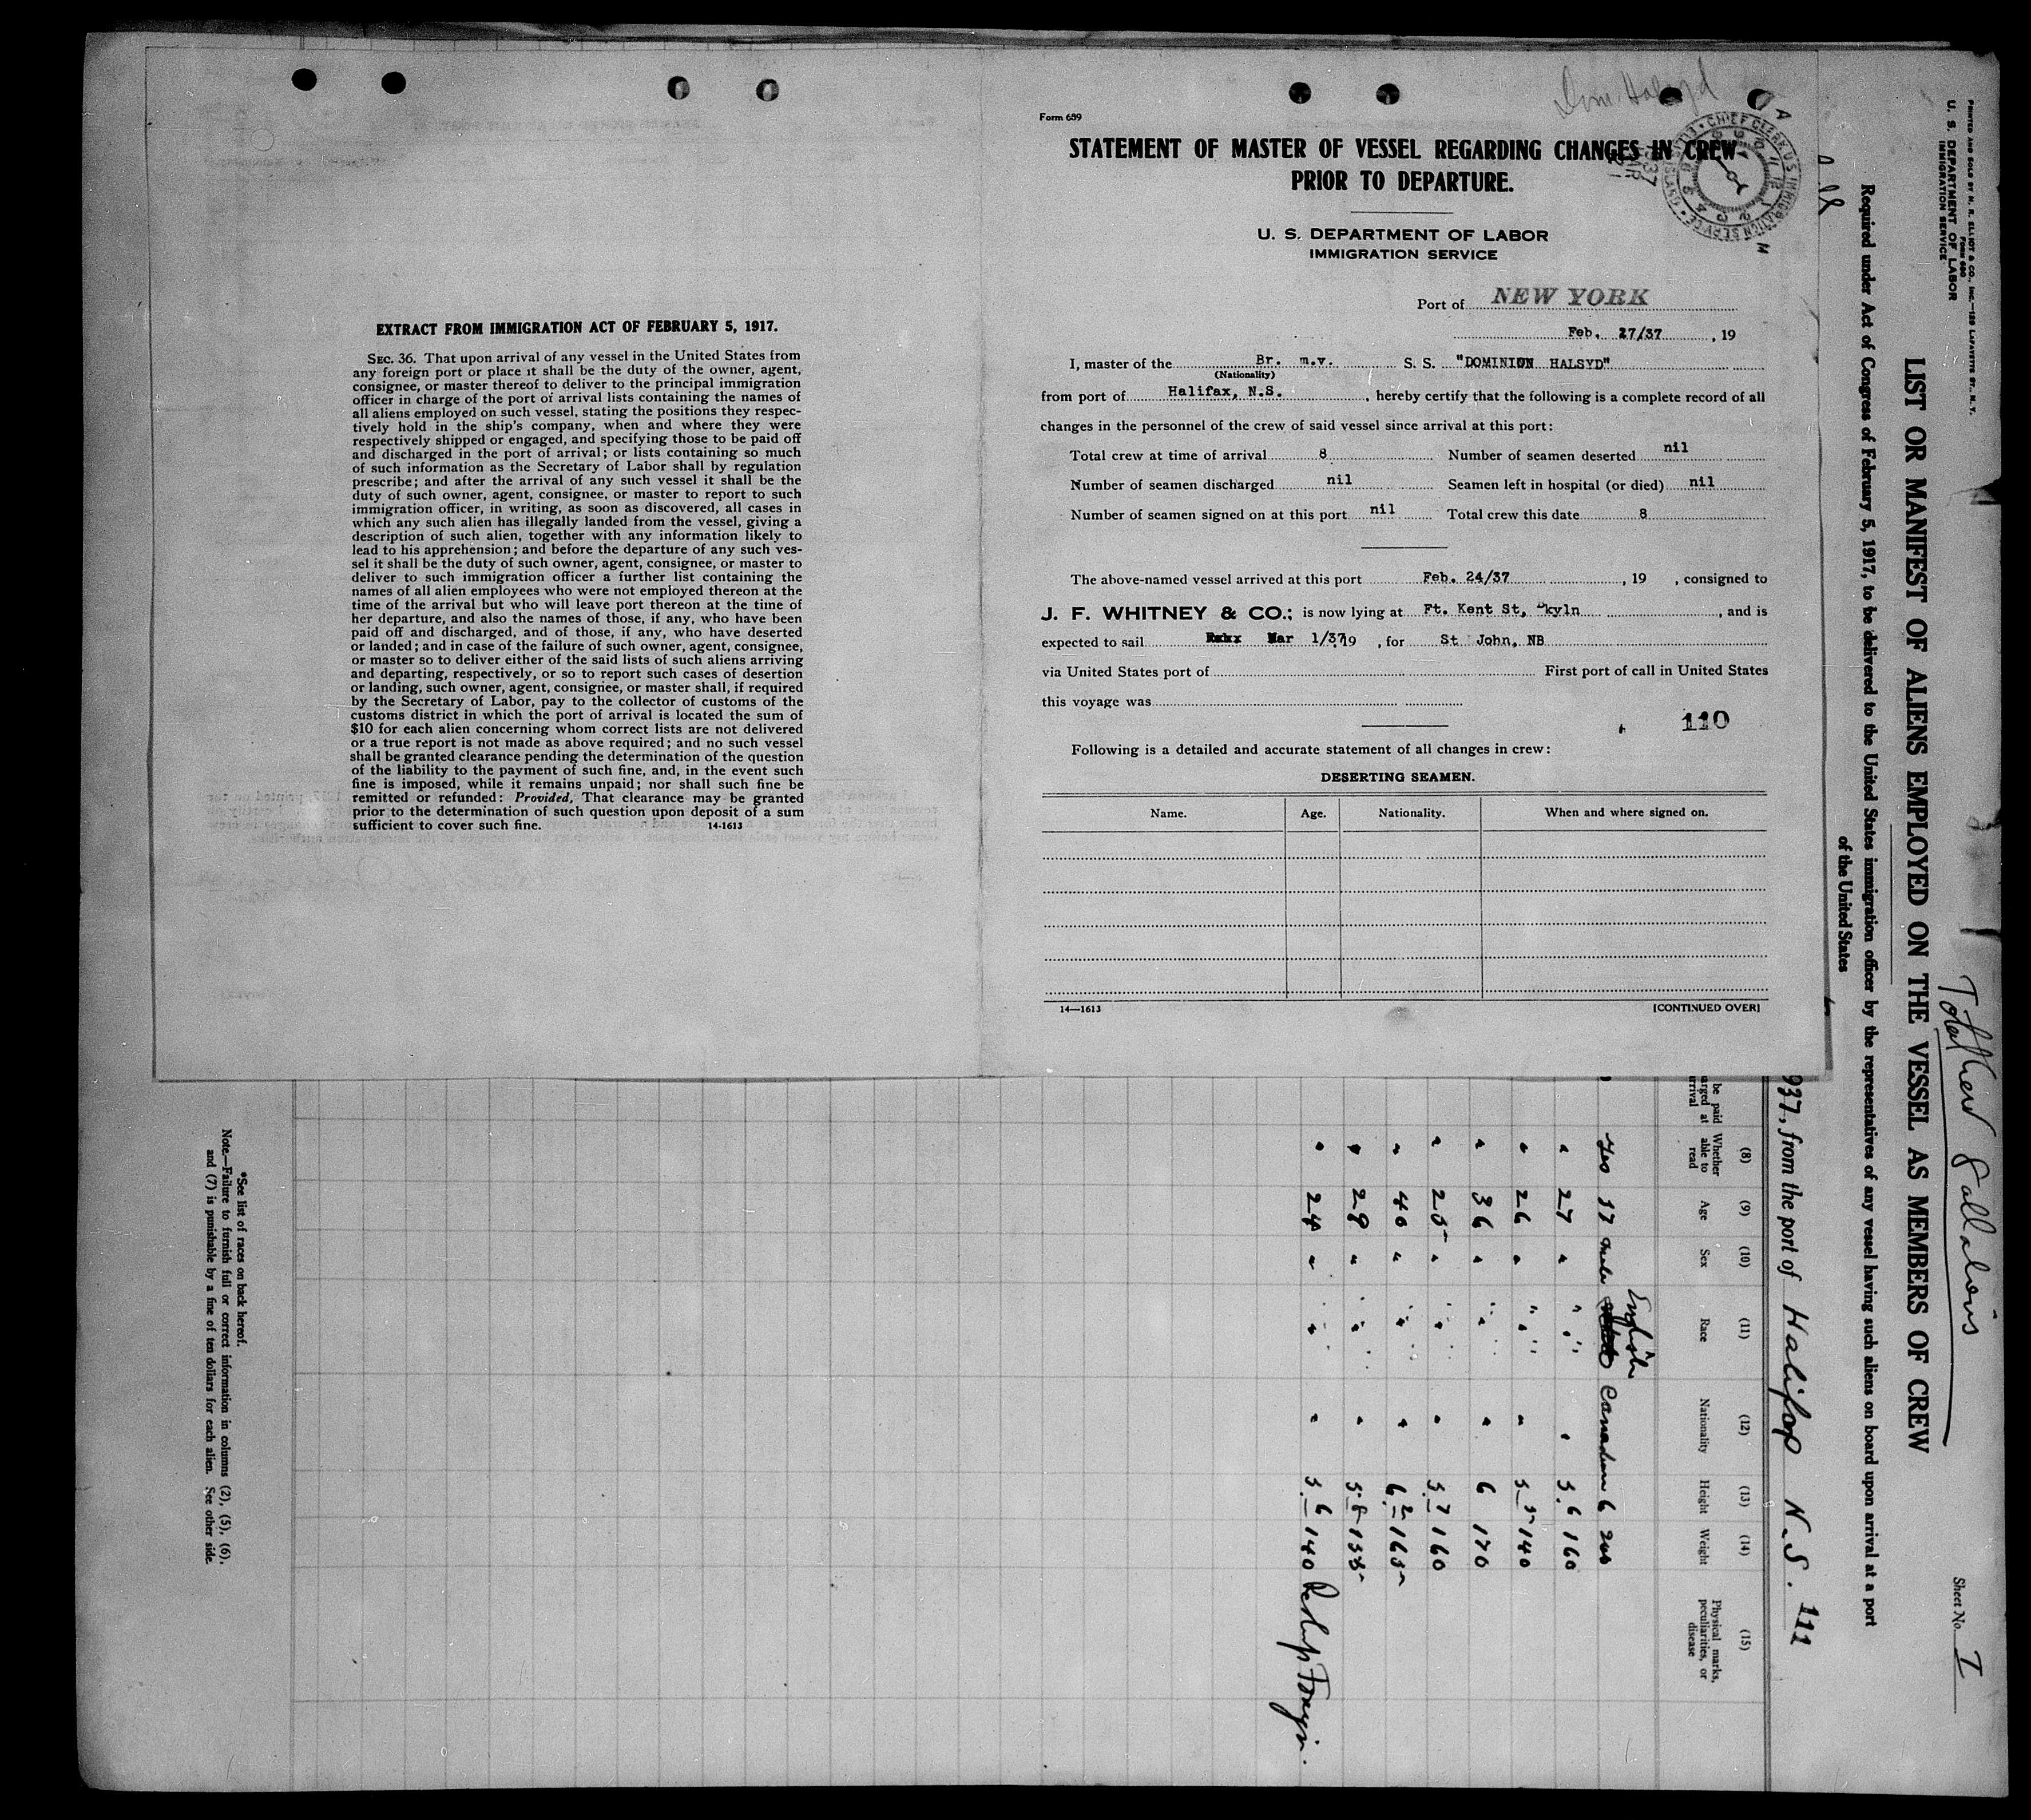 EXTRACT FROM IMMIGRATION ACT OF FEBRUARY 5, 1917.
SEC. 36. That upon arrival of any vessel in the United States from
any foreign port or place it shall be the duty of the owner, agent,
consignee, or master thereof to deliver to the principal immigration
officer in charge of the port of arrival lists containing the names of
all aliens employed on such vessel, stating the positions they respec-
tively hold in the ship's company, when and where they were
respectively shipped or engaged, and specifying those to be paid off
and discharged in the port of arrival; or lists containing so much
of such information as the Secretary of Labor shall by regulation
prescribe; and after the arrival of any such vessel it shall be the
duty of such owner, agent, consignee, or master to report to such
immigration officer, in writing, as soon as discovered, all cases in
which any such alien has illegally landed from the vessel, giving a
description of such alien, together with any information likely to
lead to his apprehension; and before the departure of any such ves-
sel it shall be the duty of such owner, agent, consignee, or master to
deliver to such immigration officer a further list containing the
names of all alien employees who were not employed thereon at the
time of the arrival but who will leave port thereon at the time of
her departure, and also the names of those, if any, who have been
paid off and discharged, and of those, if any, who have deserted
or landed; and in case of the failure of such owner, agent, consignee,
or master so to deliver either of the said lists of such aliens arriving
and departing, respectively, or so to report such cases of desertion
or landing, such owner, agent, consignee, or master shall, if required
by the Secretary of Labor, pay to the collector of customs of the
customs district in which the port of arrival is located the sum of
$10 for each alien concerning whom correct lists are not delivered
or a true report is not made as above required; and no such vessel
shall be granted clearance pending the determination of the question
of the liability to the payment of such fine, and, in the event such
fine is imposed, while it remains unpaid; nor shall such fine be
remitted or refunded: Provided, That clearance may be granted
prior to the determination of such question upon deposit of a sum
sufficient to cover such fine. 14-1613
Dom. Halsyd
Form 689
STATEMENT OF MASTER OF VESSEL REGARDING CHANGES IN CREW
PRIOR TO DEPARTURE.
CHIEF CLERK U.S. IMMIGRATION SERVICE
U. S. DEPARTMENT OF LABOR
IMMIGRATION SERVICE
Port of NEW YORK
Feb. 27/37, 19
I, master of the Br. m.v. S. S. "DOMINION HALSYD"
(Nationality)
from port of Halifax, N.S., hereby certify that the following is a complete record of all
changes in the personnel of the crew of said vessel since arrival at this port:
Total crew at time of arrival 8 Number of seamen deserted nil
Number of seamen discharged nil Seamen left in hospital (or died) nil
Number of seamen signed on at this port nil Total crew this date 8
The above-named vessel arrived at this port Feb. 24/37, 19 , consigned to
J. F. WHITNEY & CO.; is now lying at Ft. Kent St, Bkyln, and is
expected to sail Mar 1/37 19 , for St John, NB
via United States port of First port of call in United States
this voyage was
110
Following is a detailed and accurate statement of all changes in crew:
DESERTING SEAMEN.
Name. Age. Nationality. When and where signed on.
14—1613 [CONTINUED OVER]
PRINTED AND SOLD BY M. R. ELLIOT & CO., INC.—159 LAFAYETTE ST., N.Y.
Form 680
U. S. DEPARTMENT OF LABOR
IMMIGRATION SERVICE
Sheet No. 1
LIST OR MANIFEST OF ALIENS EMPLOYED ON THE VESSEL AS MEMBERS OF CREW
Required under Act of Congress of February 5, 1917, to be delivered to the United States immigration officer by the representatives of any vessel having such aliens on board upon arrival at a port
of the United States
937, from the port of Halifax N.S. 111
(8) (9) (10) (11) (12) (13) (14) (15)
Whether able to read Age Sex Race Nationality Height Weight Physical marks, peculiarities, or disease
English
Yes 37 male Canadian 6 200
" 27 " " " 5.6 160
" 26 " " " 5.5 140
" 36 " " " 6 170
" 25 " " " 5.7 160
" 40 " " " 6.2 165
" 28 " " " 5.8 155
" 24 " " " 5.6 140
*See list of races on back hereof.
Note.—Failure to furnish full or correct information in columns (2), (5), (6),
and (7) is punishable by a fine of ten dollars for each alien. See other side.